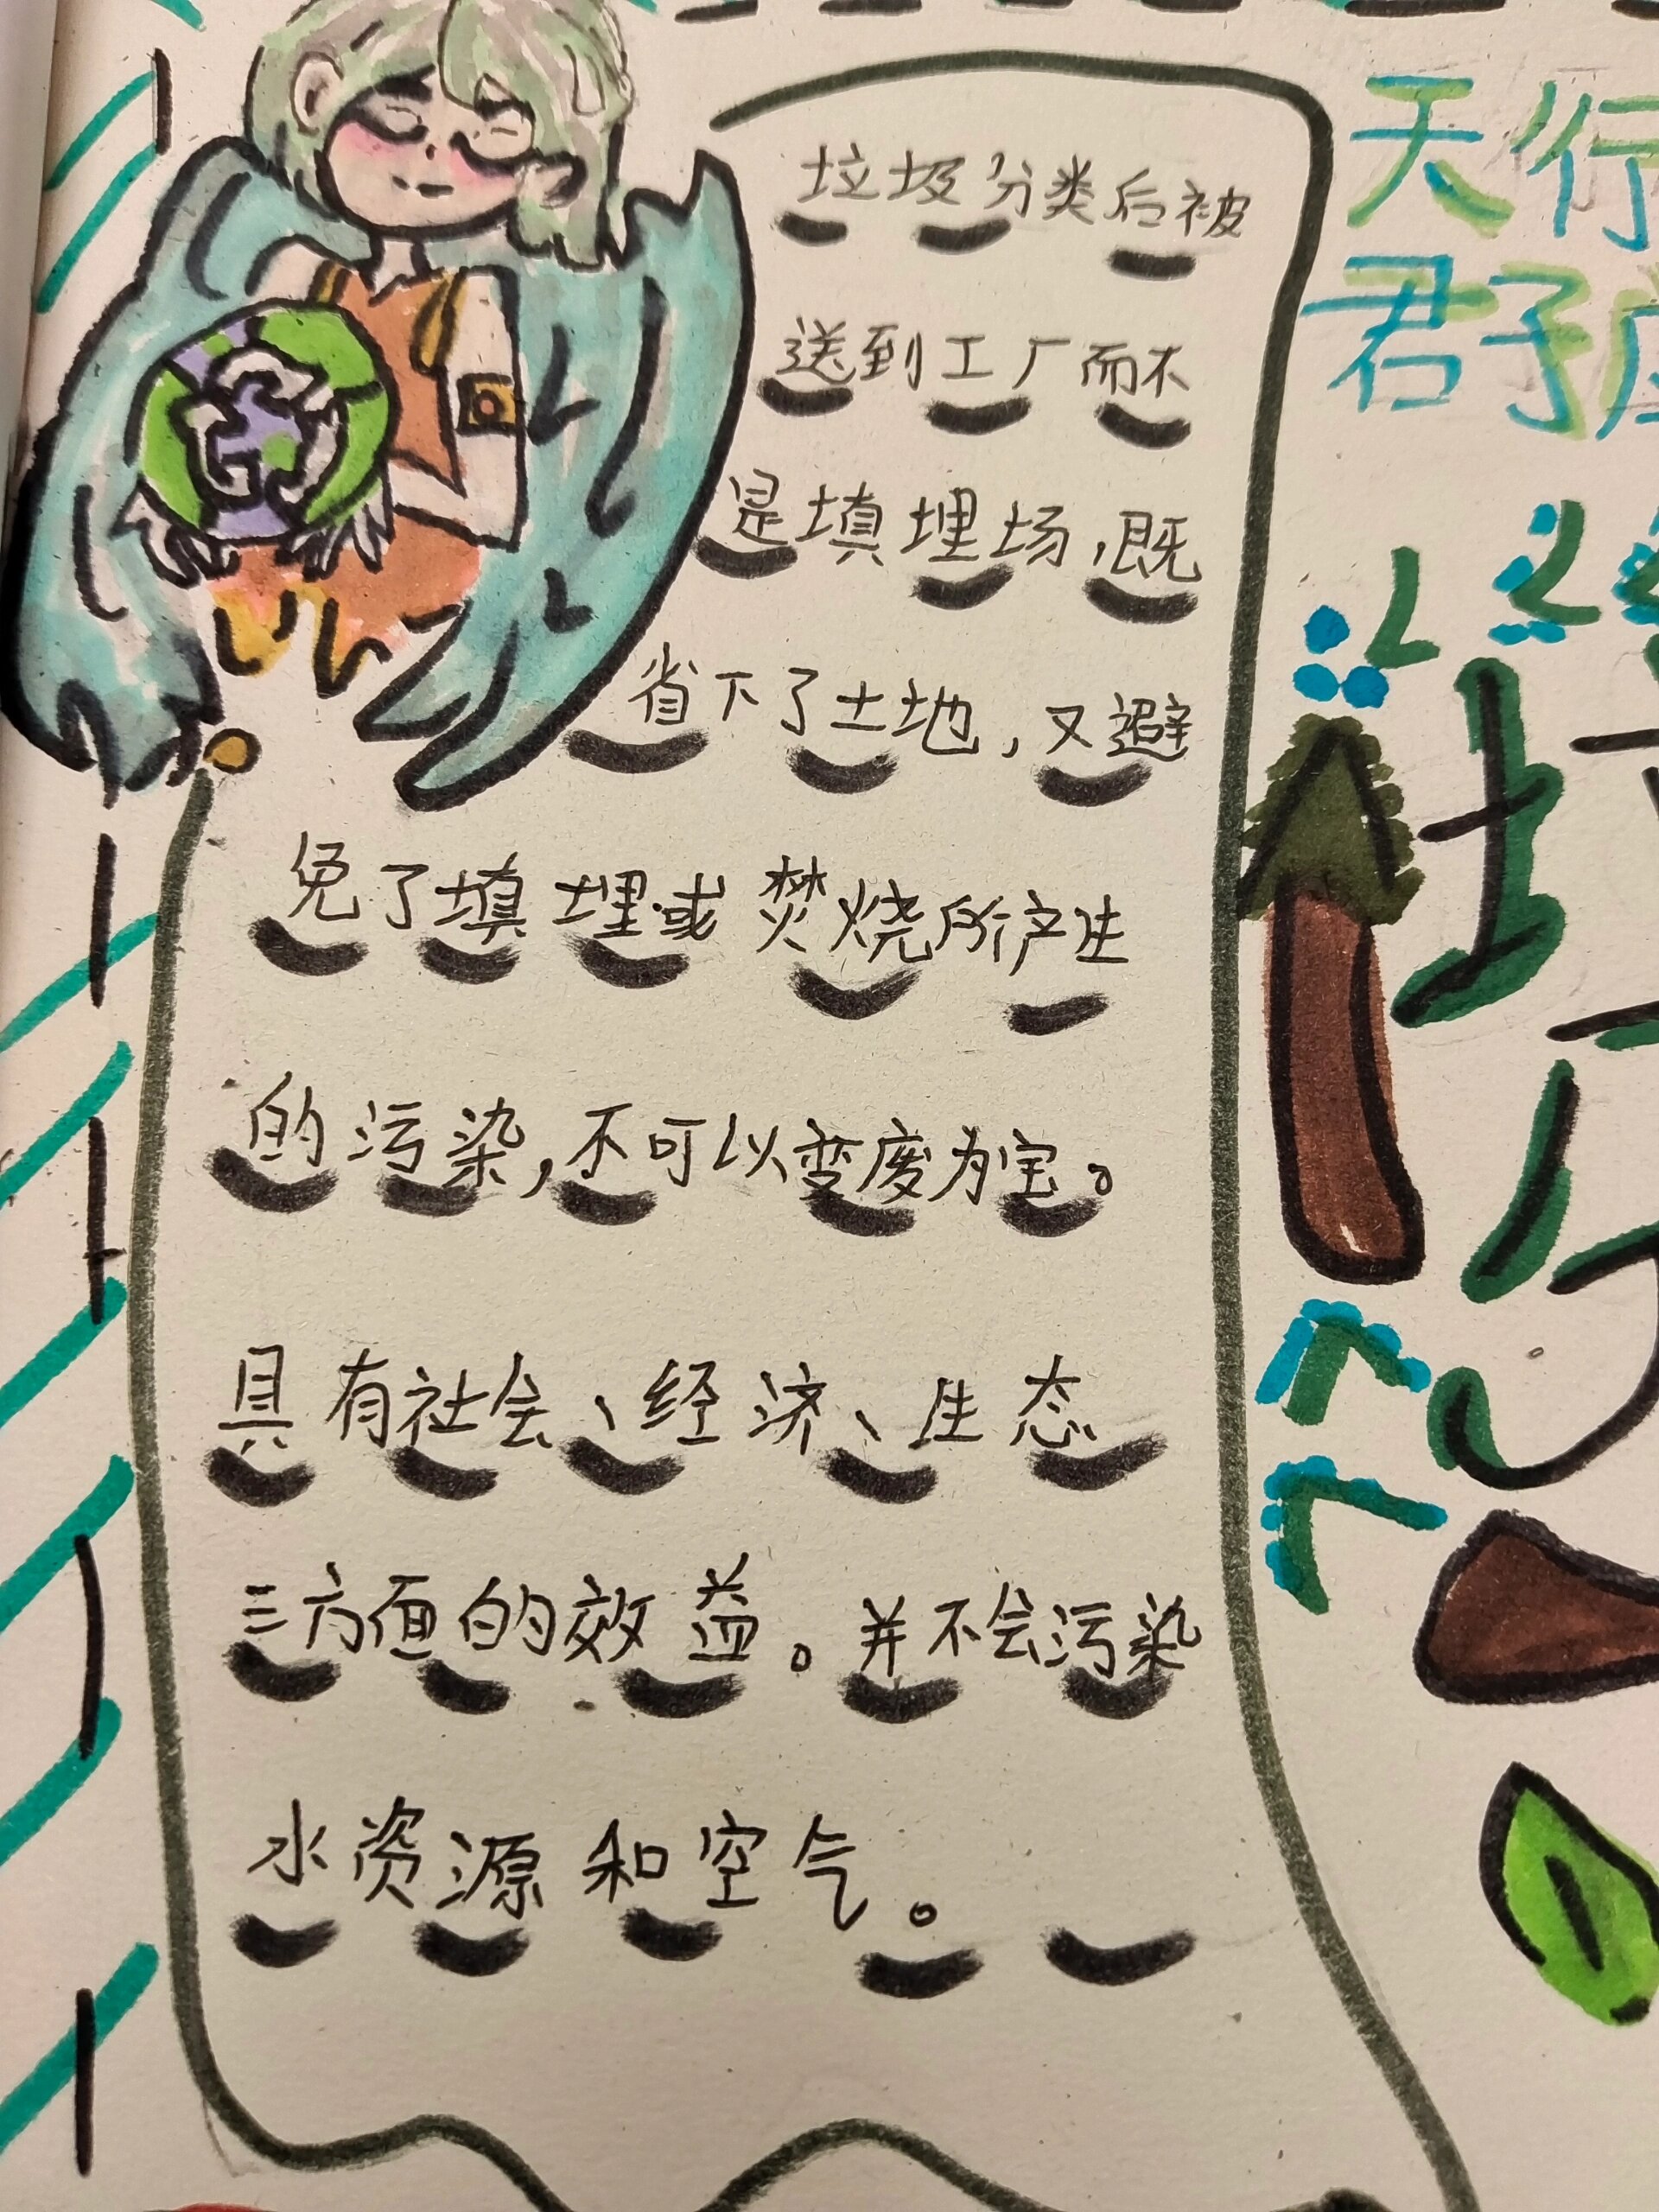 垃圾分类后被
送到工厂而不
是填埋场,既
省下了土地,又避
免了填埋或焚烧所产生
的污染,不可以变废为宝。
具有社会、经济、生态
三方面的效益。并不会污染
水资源和空气。
天行
君子